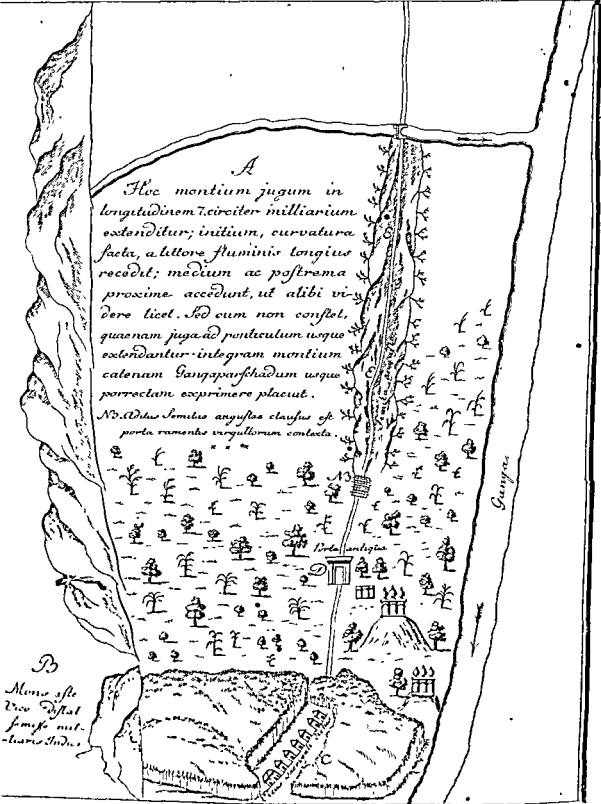 A
Hoc montium jugum in
longitudinem 7. circiter milliarium
extenditur; initium, curvatura
facta, a littore fluminis longius
recedit; medium ac postrema
proxime accedunt, ut alibi vi-
dere licet. Sed cum non constet,
quaenam juga ad ponticulum usque
extendantur integram montium
catenam Gangaparschadum usque
porrectam exprimere placuit.
NB. Aditus semitus angustae clausus est
porta ramentis virgultorum contexta.
NB
Porta antiqua
D
Ganga
B
Mons iste
Vico distat
semisse mil-
liaris Indic.
C